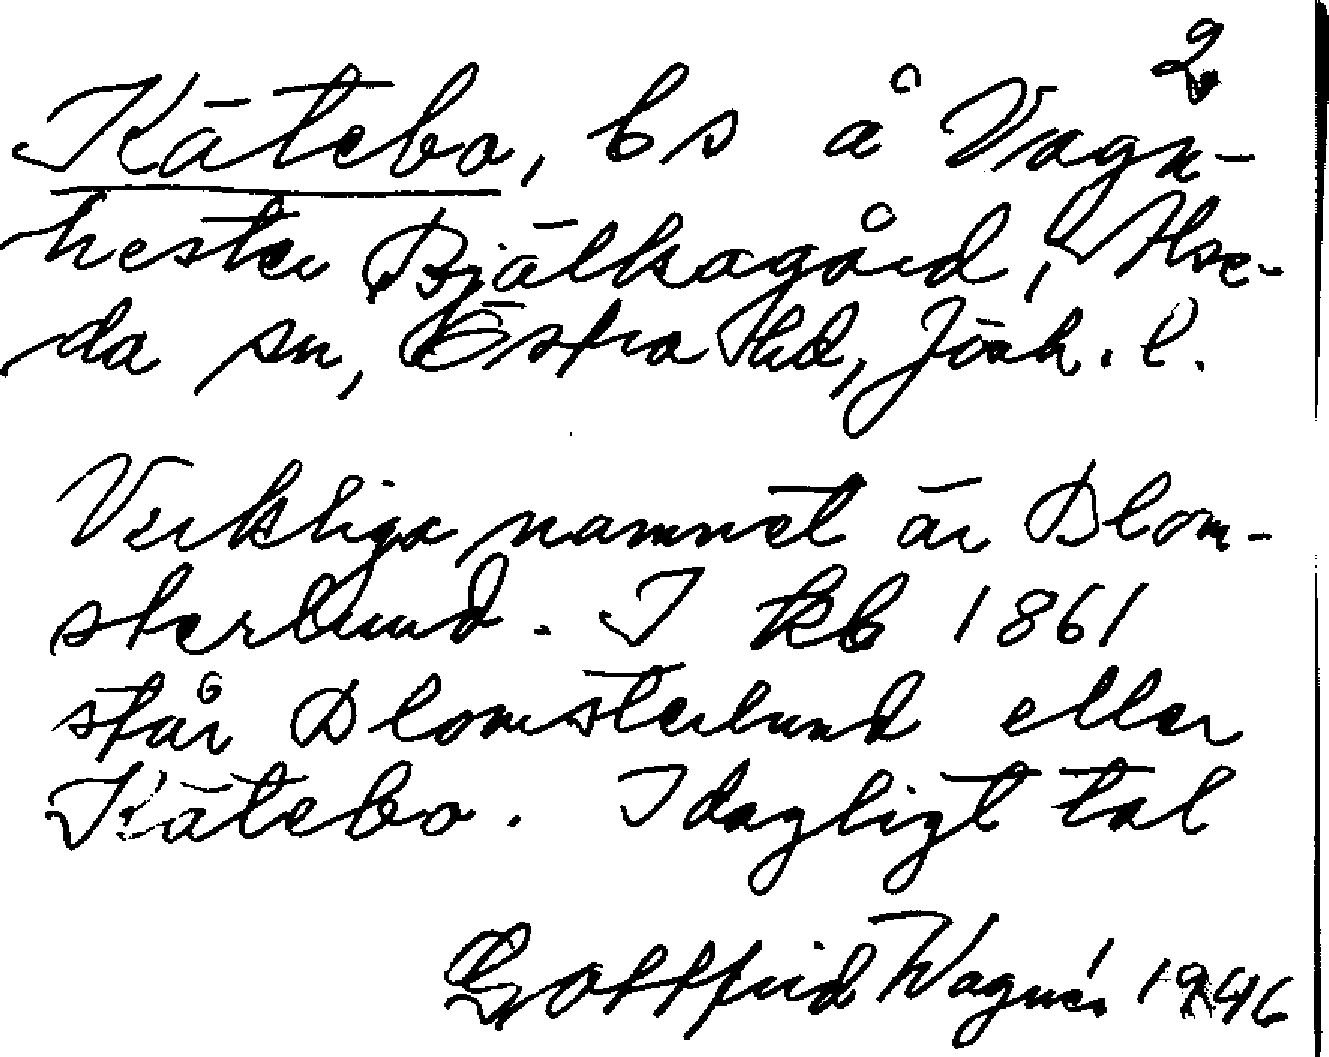 2
Kätebo, bs å Vagn-
hester Bjälkagård, Alse-
da sn, Östra Hd, Jönk. l.
Verkliga namnet är Blom-
sterlund. I kb 1861
står Blomsterlund eller
Kätebo. I dagligt tal
Gottfrid Wagnér 1946